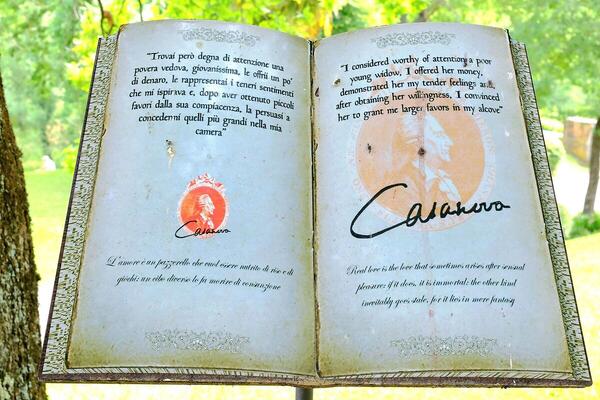 "Trovai però degna di attenzione una
povera vedova, giovanissima, le offrii un po'
di denaro, le rappresentai i teneri sentimenti
che mi ispirava e, dopo aver ottenuto piccoli
favori dalla sua compiacenza, la persuasi a
concedermi quelli più grandi nella mia
camera"
Casanova
L'amore è un pazzerello che vuol essere nutrito di riso e di
giochi; un cibo diverso lo fa morire di consunzione
"I considered worthy of attention a poor
young widow, I offered her money,
demonstrated her my tender feelings and,
after obtaining her willingness, I convinced
her to grant me larger favors in my alcove"
Casanova
Real love is the love that sometimes arises after sensual
pleasure: if it does, it is immortal; the other kind
inevitably goes stale, for it lies in mere fantasy